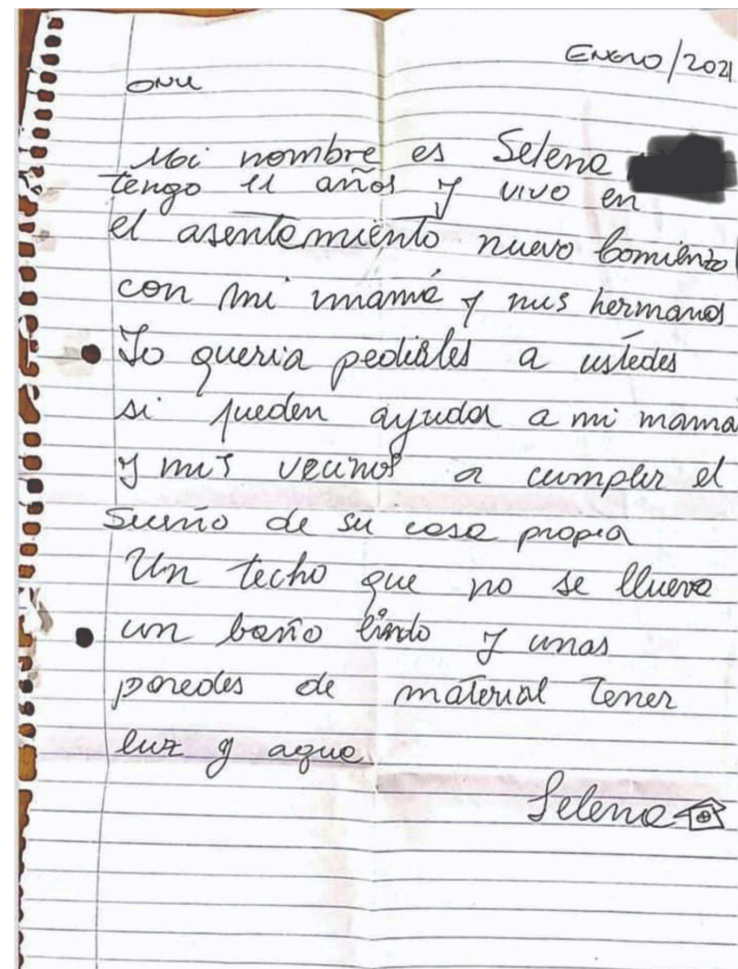 Enero/2021
ONU
Mi nombre es Selena
tengo 11 años y vivo en
el asentamiento nuevo Comienzo
con mi mamá y mis hermanos
Yo queria pedirles a ustedes
si pueden ayudar a mi mama
y mis vecinos a cumplir el
sueño de su casa propia
Un techo que no se llueva
un baño lindo y unas
paredes de material Tener
luz y agua
Selena